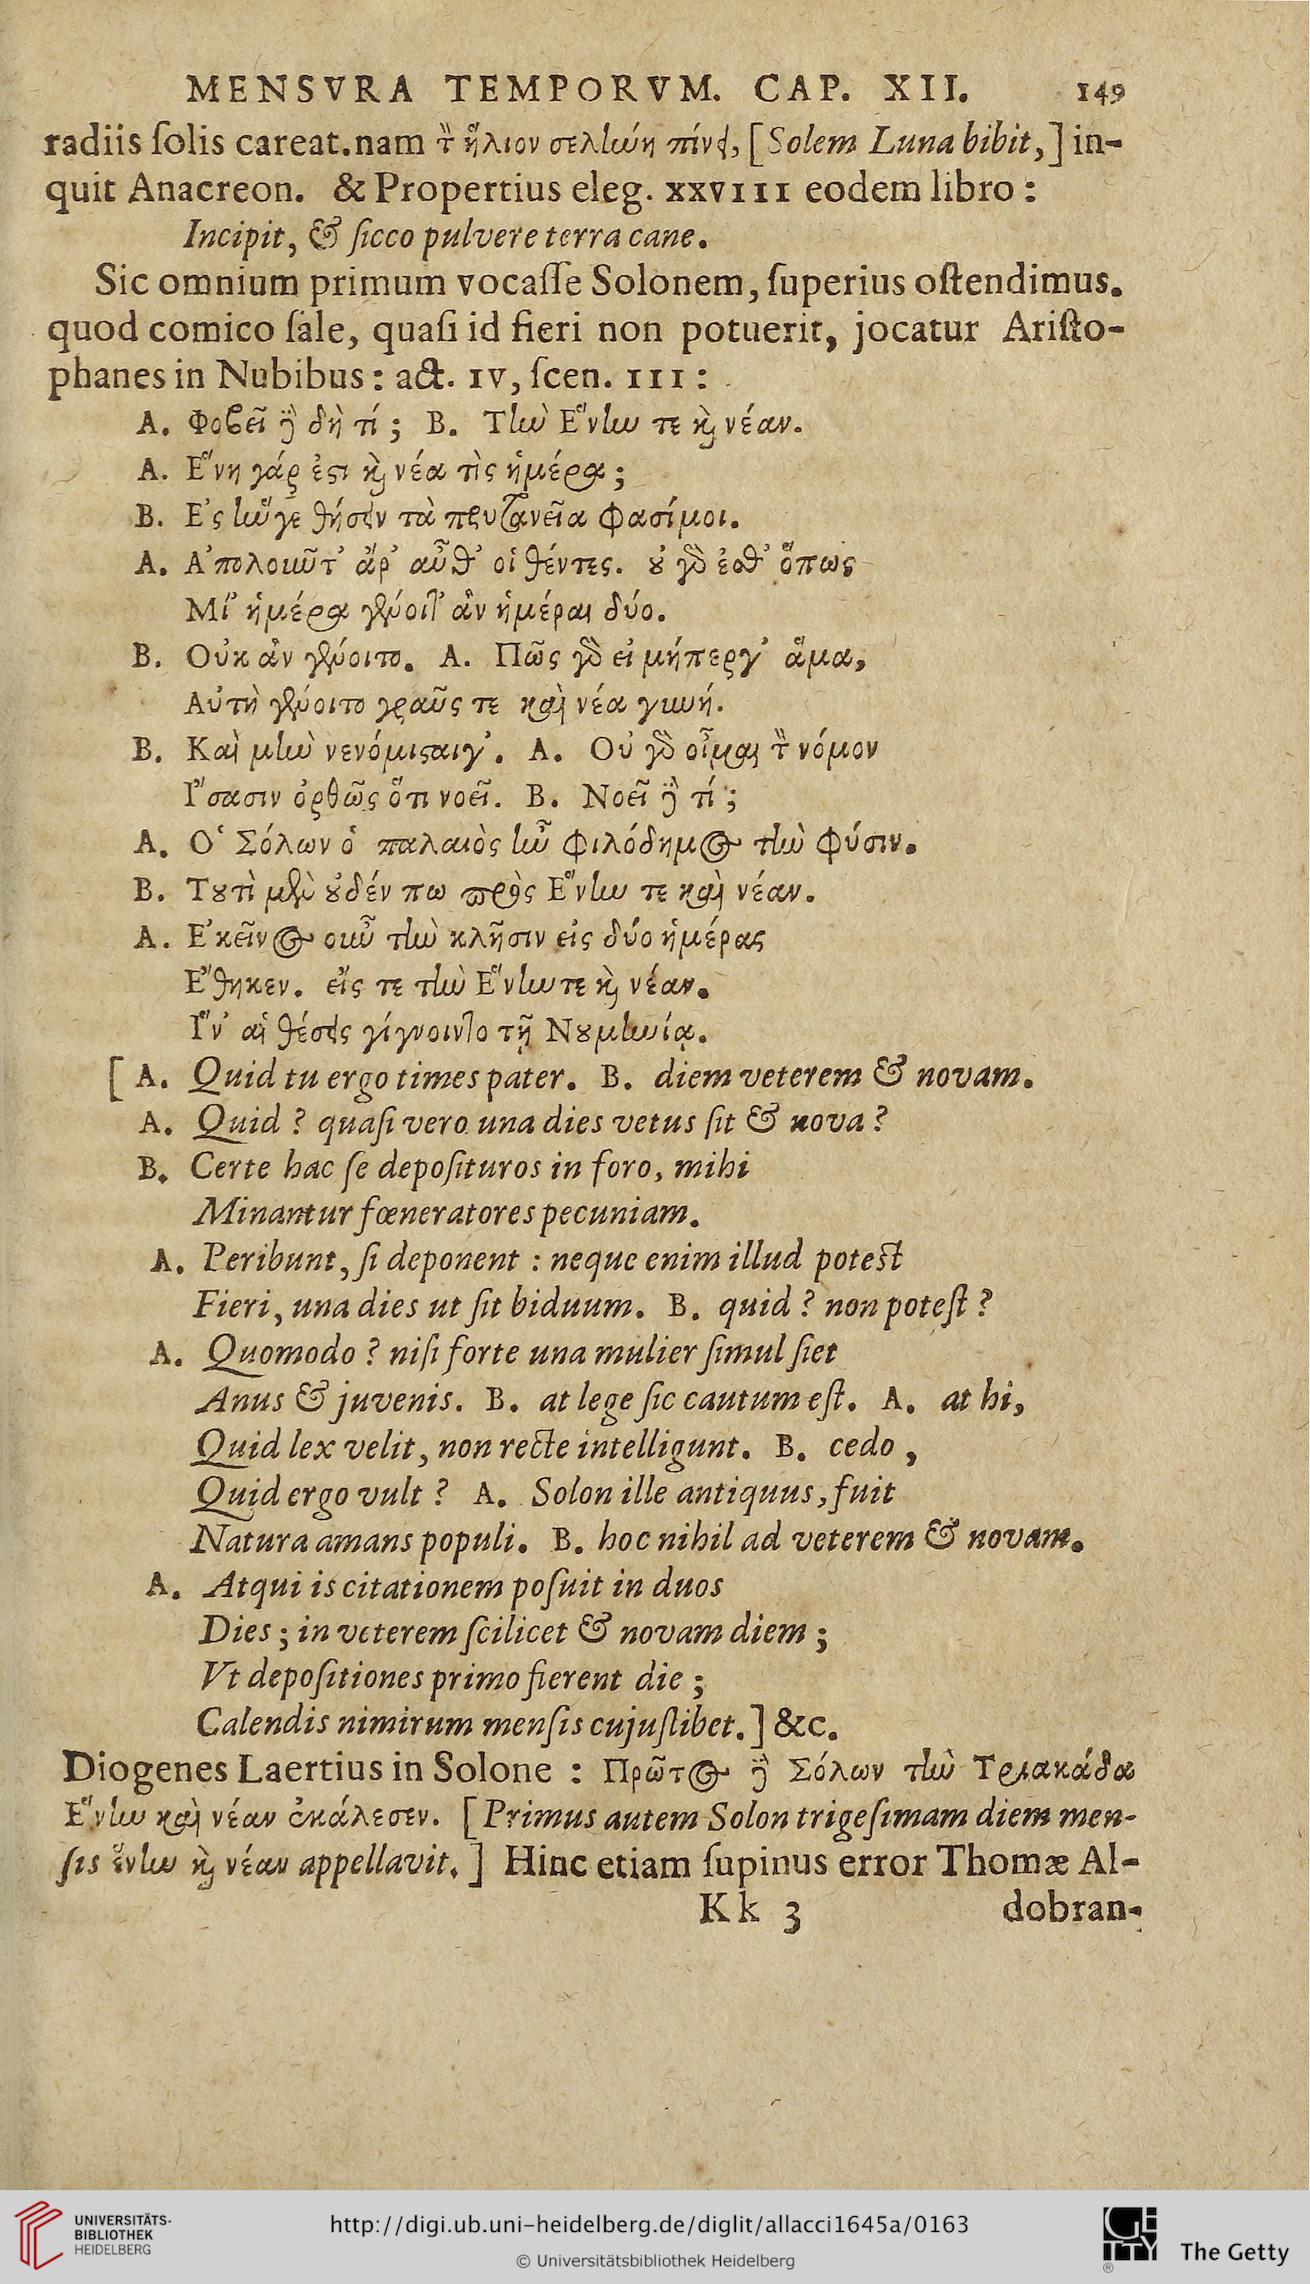 MENSVRA TEMPORVM. CAP. XII. 149
radiis ſolis careat. nam τ̀ ἥλιον σελήνη πίνει, [Solem Luna bibit,] in-
quit Anacreon. & Propertius eleg. XXVIII eodem libro :
Incipit, & ſicco pulvere terra cane.
Sic omnium primum vocaſſe Solonem, ſuperius oſtendimus.
quod comico ſale, quaſi id fieri non potuerit, jocatur Ariſto-
phanes in Nubibus : act. IV, ſcen. III :
A. Φοβεῖ ἢ δὴ τί ; B. Τὴν Ἕνην τε ϗ νέαν.
A. Ἕνη γάρ ἐϛι ϗ νέα τὶς ἡμέρα ;
B. Ἐς ἥν γε θήσειν τὰ πρυτανεῖα φασίμοι.
A. Ἀπολοιῦτ᾽ ἄρ᾽ αὖθ᾽ οἱ θέντες. ȣ γὸ ἐσθ᾽ ὅπως
Μί᾽ ἡμέρα γένοιτ᾽ ἂν ἡμέραι δύο.
B. Οὐκ ἂν γένοιτο. A. Πῶς γὸ εἰ μήπεργ᾽ ἅμα,
Αὐτὴ γένοιτο γραῦς τε καὶ νέα γυνή.
B. Καὶ μὴν νενόμιϛαιγ᾽. A. Οὐ γὸ οἶμαι τ̀ νόμον
Ἴσασιν ὀρθῶς ὅτι νοεῖ. B. Νοεῖ ἢ τί ;
A. Ὁ Σόλων ὁ παλαιὸς ἦν φιλόδημος τὴν φύσιν.
B. Τȣτὶ μὲν ȣδέν πω πρὸς Ἕνην τε καὶ νέαν.
A. Ἐκεῖνος οὖν τὴν κλῆσιν εἰς δύο ἡμέρας
Ἔθηκεν. εἴς τε τὴν Ἕνην τε ϗ νέαν.
Ἵν᾽ αἱ θέσεις γίγνοιντο τῇ Νȣμηνίᾳ.
[ A. Quid tu ergo times pater. B. diem veterem & novam.
A. Quid ? quaſi vero una dies vetus ſit & nova ?
B. Certe hac ſe depoſituros in foro, mihi
Minantur fœneratores pecuniam.
A. Peribunt, ſi deponent : neque enim illud poteſt
Fieri, una dies ut ſit biduum. B. quid ? non poteſt ?
A. Quomodo ? niſi forte una mulier ſimul ſiet
Anus & juvenis. B. at lege ſic cautum eſt. A. at hi,
Quid lex velit, non recte intelligunt. B. cedo ,
Quid ergo vult ? A. Solon ille antiquus, fuit
Natura amans populi. B. hoc nihil ad veterem & novam.
A. Atqui is citationem poſuit in duos
Dies ; in veterem ſcilicet & novam diem ;
Vt depoſitiones primo fierent die ;
Calendis nimirum menſis cujuſlibet.] &c.
Diogenes Laertius in Solone : Πρῶτος ἢ Σόλων τὴν Τριακάδα
Ἕνην καὶ νέαν ἐκάλεσεν. [Primus autem Solon trigeſimam diem men-
ſis ἕνην ϗ νέαν appellavit.] Hinc etiam ſupinus error Thomæ Al-
Kk 3 dobran-
UNIVERSITÄTS-
BIBLIOTHEK
HEIDELBERG
http://digi.ub.uni-heidelberg.de/diglit/allacci1645a/0163
© Universitätsbibliothek Heidelberg
GETTY
®
The Getty